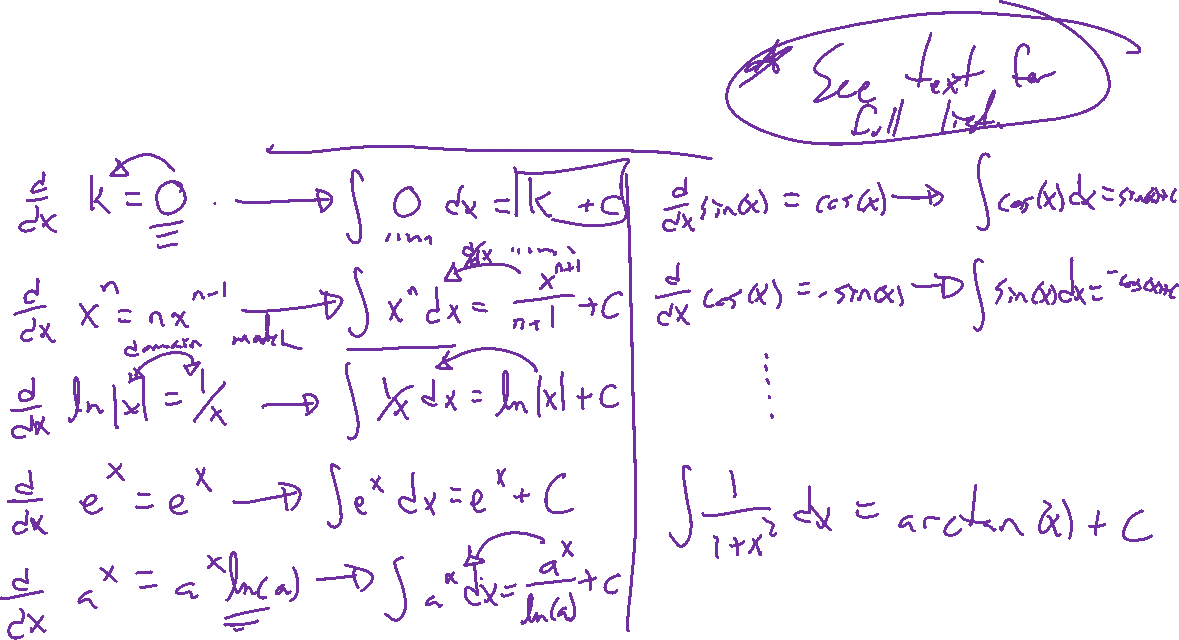 * See text for
full list.
d/dx k = 0 → ∫ 0 dx = k + C
d/dx xⁿ = nxⁿ⁻¹ → ∫ xⁿ dx = xⁿ⁺¹/(n+1) + C
d/dx
domain match
d/dx ln|x| = 1/x → ∫ 1/x dx = ln|x| + C
d/dx eˣ = eˣ → ∫ eˣ dx = eˣ + C
d/dx aˣ = aˣ ln(a) → ∫ aˣ dx = aˣ/ln(a) + C
d/dx sin(x) = cos(x) → ∫ cos(x) dx = sin(x)+C
d/dx cos(x) = -sin(x) → ∫ sin(x) dx = -cos(x)+C
⋮
∫ 1/(1+x²) dx = arctan(x) + C